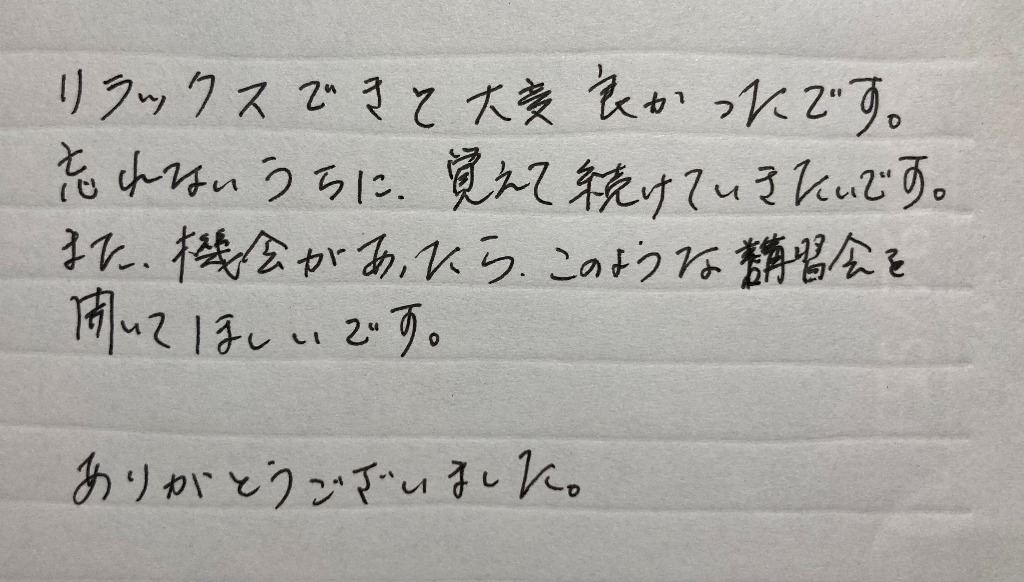 リラックスできて大変良かったです。
忘れないうちに、覚えて続けていきたいです。
また、機会があったら、このような講習会を
開いてほしいです。
ありがとうございました。